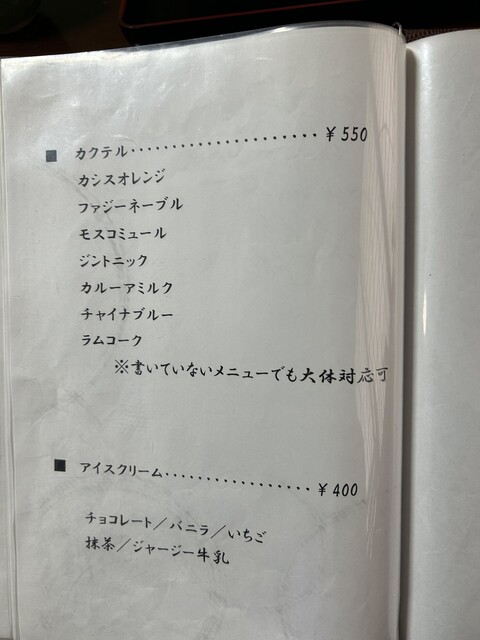 ■ カクテル・・・・・・・・・・・・・・・・・・・・・￥550
カシスオレンジ
ファジーネーブル
モスコミュール
ジントニック
カルーアミルク
チャイナブルー
ラムコーク
※書いていないメニューでも大体対応可
■ アイスクリーム・・・・・・・・・・・・・・・・・￥400
チョコレート／バニラ／いちご
抹茶／ジャージー牛乳